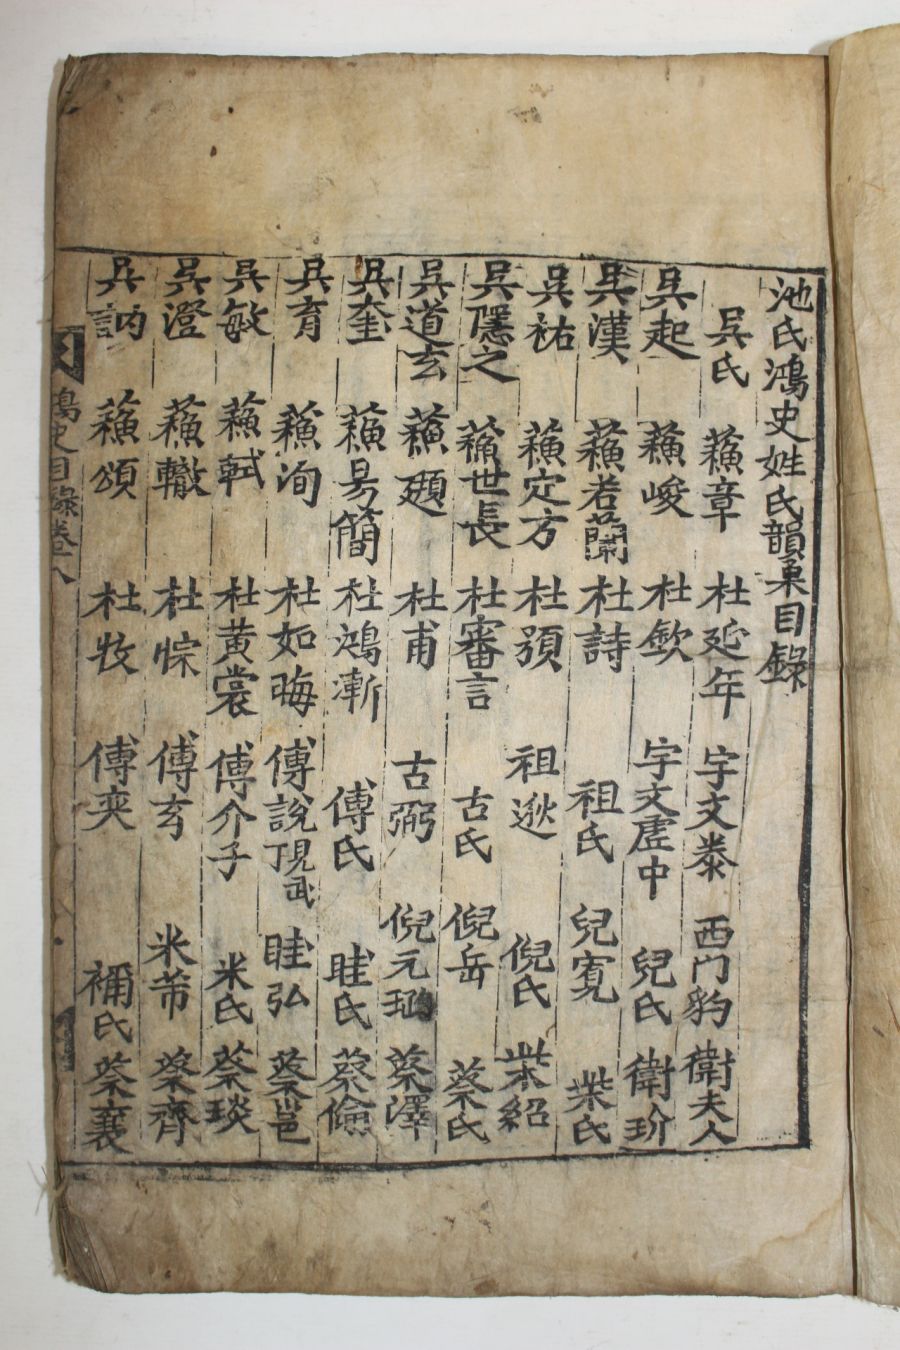 池氏鴻史姓氏韻彙目錄
吳氏 蘓章 杜延年 宇文泰 西門豹 衛夫人
吳起 蘓峻 杜欽 宇文虛中 兒氏 衛玠
吳漢 蘓若蘭 杜詩 祖氏 兒寬 柴氏
吳祐 蘓定方 杜預 祖逖 倪氏 柴紹
吳隱之 蘓世長 杜審言 古氏 倪岳 蔡氏
吳道玄 蘓頲 杜甫 古弼 倪元璐 蔡澤
吳奎 蘓易簡 杜鴻漸 傅氏 眭氏 蔡倫
吳育 蘓洵 杜如晦 傅說 見武丁 眭弘 蔡邕
吳敏 蘓軾 杜黃裳 傅介子 米氏 蔡琰
吳澄 蘓轍 杜悰 傅玄 米芾 蔡齊
吳訥 蘓頌 杜牧 傅奕 禰氏 蔡襄
鴻史目錄卷八